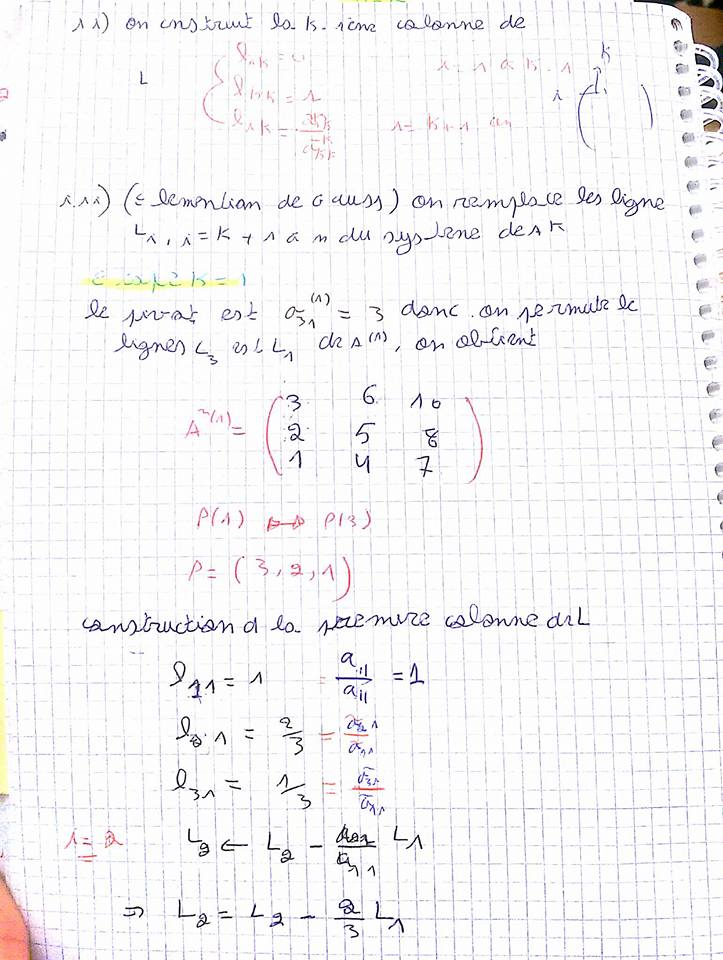 ii) on construit la k-ième colonne de
L { l_ik = 0 i = 1 à k-1
l_kk = 1
l_ik = a_ik / a_kk i = k+1 à n
k
i
i.ii) (Elemention de Gauss) on remplace les ligne
L_i, i = k + 1 à n du système de A k
k = 1
le pivot est a_31^(1) = 3 donc on permute le
lignes L_3 et L_1 de A^(1), on obtient
A^~(1) = ( 3 6 10
2 5 8
1 4 7 )
P(1) ↔ P(3)
P = (3, 2, 1)
construction d la premire colonne de L
l_11 = 1 = a_11 / a_11 = 1
l_21 = 2/3 = a_21 / a_11
l_31 = 1/3 = a_31 / a_11
i = 2 L_2 ← L_2 - a_21 / a_11 L_1
⇒ L_2 = L_2 - 2/3 L_1